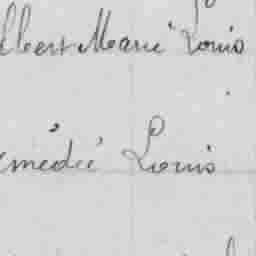 lbert Marie Louis
médée Louis